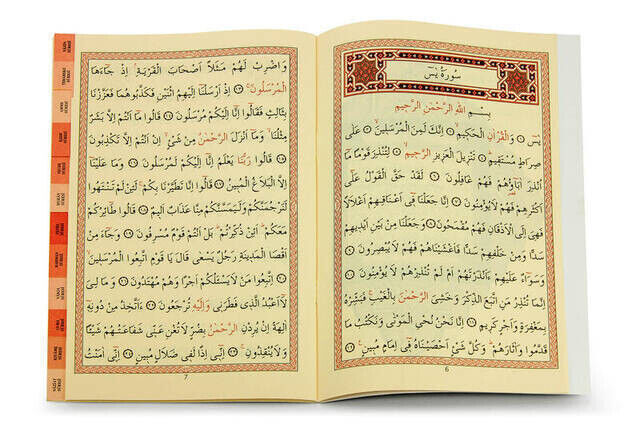 سُورَةُ يٰسٓ
بِسْمِ اللهِ الرَّحْمٰنِ الرَّحِيمِ
يٰسٓ ۝ وَالْقُرْآنِ الْحَكِيمِ ۝ اِنَّكَ لَمِنَ الْمُرْسَلِينَ ۝ عَلٰى
صِرَاطٍ مُسْتَقِيمٍ ۝ تَنْزِيلَ الْعَزِيزِ الرَّحِيمِ ۝ لِتُنْذِرَ قَوْمًا مَا
اُنْذِرَ اٰبَاؤُهُمْ فَهُمْ غَافِلُونَ ۝ لَقَدْ حَقَّ الْقَوْلُ عَلٰى
اَكْثَرِهِمْ فَهُمْ لَايُؤْمِنُونَ ۝ اِنَّا جَعَلْنَا فِى اَعْنَاقِهِمْ اَغْلَالًا
فَهِىَ اِلَى الْاَذْقَانِ فَهُمْ مُقْمَحُونَ ۝ وَجَعَلْنَا مِنْ بَيْنِ اَيْدِيهِمْ
سَدًّا وَمِنْ خَلْفِهِمْ سَدًّا فَاَغْشَيْنَاهُمْ فَهُمْ لَايُبْصِرُونَ ۝
وَسَوَاءٌ عَلَيْهِمْ ءَاَنْذَرْتَهُمْ اَمْ لَمْ تُنْذِرْهُمْ لَايُؤْمِنُونَ ۝
اِنَّمَا تُنْذِرُ مَنِ اتَّبَعَ الذِّكْرَ وَخَشِىَ الرَّحْمٰنَ بِالْغَيْبِ فَبَشِّرْهُ
بِمَغْفِرَةٍ وَاَجْرٍ كَرِيمٍ ۝ اِنَّا نَحْنُ نُحْيِى الْمَوْتٰى وَنَكْتُبُ مَا
قَدَّمُوا وَاٰثَارَهُمْ وَكُلَّ شَىْءٍ اَحْصَيْنَاهُ فِى اِمَامٍ مُبِينٍ ۝
6
وَاضْرِبْ لَهُمْ مَثَلًا اَصْحَابَ الْقَرْيَةِ اِذْ جَاءَهَا
الْمُرْسَلُونَ ۝ اِذْ اَرْسَلْنَا اِلَيْهِمُ اثْنَيْنِ فَكَذَّبُوهُمَا فَعَزَّزْنَا
بِثَالِثٍ فَقَالُوا اِنَّا اِلَيْكُمْ مُرْسَلُونَ ۝ قَالُوا مَا اَنْتُمْ اِلَّا بَشَرٌ
مِثْلُنَا وَمَا اَنْزَلَ الرَّحْمٰنُ مِنْ شَىْءٍ اِنْ اَنْتُمْ اِلَّا تَكْذِبُونَ
۝ قَالُوا رَبُّنَا يَعْلَمُ اِنَّا اِلَيْكُمْ لَمُرْسَلُونَ ۝ وَمَا عَلَيْنَا
اِلَّا الْبَلَاغُ الْمُبِينُ ۝ قَالُوا اِنَّا تَطَيَّرْنَا بِكُمْ لَئِنْ لَمْ تَنْتَهُوا
لَنَرْجُمَنَّكُمْ وَلَيَمَسَّنَّكُمْ مِنَّا عَذَابٌ اَلِيمٌ ۝ قَالُوا طَائِرُكُمْ
مَعَكُمْ اَئِنْ ذُكِّرْتُمْ بَلْ اَنْتُمْ قَوْمٌ مُسْرِفُونَ ۝ وَجَاءَ مِنْ
اَقْصَا الْمَدِينَةِ رَجُلٌ يَسْعٰى قَالَ يَا قَوْمِ اتَّبِعُوا الْمُرْسَلِينَ
۝ اِتَّبِعُوا مَنْ لَايَسْئَلُكُمْ اَجْرًا وَهُمْ مُهْتَدُونَ ۝ وَمَا لِىَ
لَااَعْبُدُ الَّذِى فَطَرَنِى وَاِلَيْهِ تُرْجَعُونَ ۝ ءَاَتَّخِذُ مِنْ دُونِهِ
اٰلِهَةً اِنْ يُرِدْنِ الرَّحْمٰنُ بِضُرٍّ لَاتُغْنِ عَنِّى شَفَاعَتُهُمْ شَيْئًا
وَلَايُنْقِذُونِ ۝ اِنِّى اِذًا لَفِى ضَلَالٍ مُبِينٍ ۝ اِنِّى اٰمَنْتُ
7